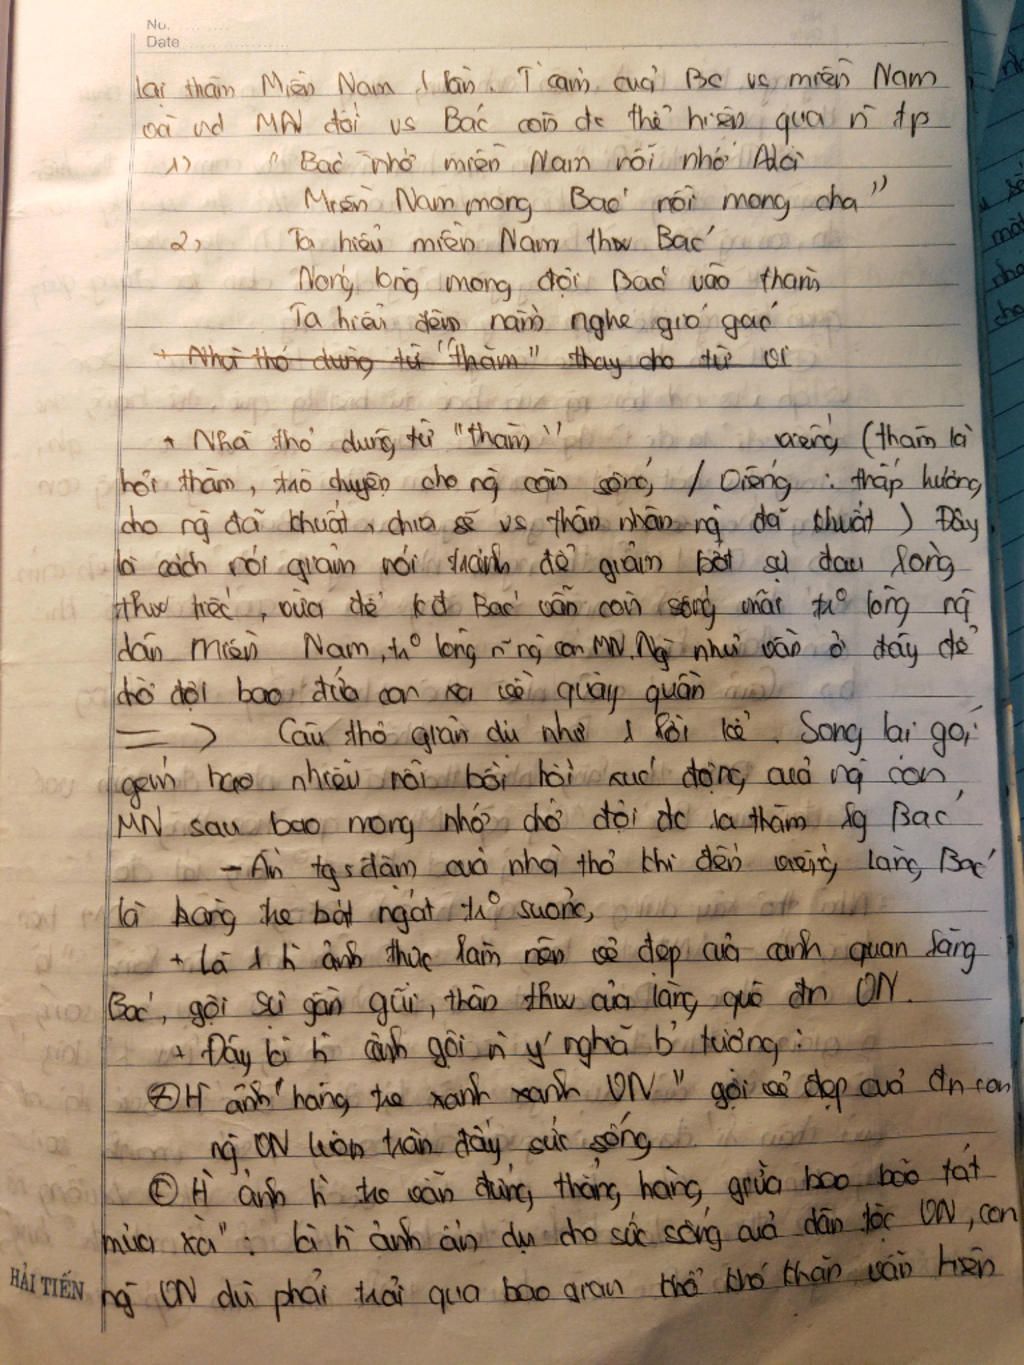 No.
Date
lại thăm Miền Nam 1 lần. T cảm của Bc vs miền Nam
và nd MN đối vs Bác còn đc thể hiện qua n~ tp
1) " Bác nhớ miền Nam nỗi nhớ nhà
Miền Nam mong Bác nỗi mong cha"
2, Ta hiểu miền Nam thư Bác
Nóng lòng mong đợi Bác vào thăm
Ta hiểu đêm nằm nghe gió gác
+ Nhà thơ dùng từ "thăm" thay cho từ vi
+ Nhà thơ dùng từ "thăm" viếng (thăm là
hỏi thăm, trò chuyện cho ng còn sống / Viếng : thắp hương
cho ng đã khuất, chia sẻ vs thân nhân ng đã khuất ) Đây
là cách nói giảm nói tránh để giảm bớt sự đau lòng
thư tiếc, vừa để kđ Bác vẫn còn sống mãi tr° lòng ng
dân Miền Nam, tr° lòng n~ ng con MN. Ng như vẫn ở đấy để
chờ đợi bao đứa con xa về quây quần
=> Câu thơ giản dị như 1 lời kể. Song lại gói
gém bao nhiêu nỗi bồi hồi xúc động của ng con
MN sau bao mong nhớ chờ đợi đc ra thăm lg Bác
- Ấn tg s đậm của nhà thơ khi đến viếng lăng Bác
là hàng tre bát ngát tr° sương,
+ Là 1 h ảnh thực làm nên vẻ đẹp của cảnh quan lăng
Bác, gợi sự gần gũi, thân thư của làng quê đn VN.
+ Đây là h ảnh gợi n ý nghĩa b' tượng :
+ H ảnh "hàng tre xanh xanh VN" gợi vẻ đẹp của đn con
ng VN luôn tràn đầy sức sống
+ H ảnh h tre vẫn đứng thẳng hàng giữa bao bão táp
mưa xa" : là h ảnh ẩn dụ cho sức sống của dân tộc VN, con
ng VN dù phải trải qua bao gian khổ khó khăn vẫn hiên
HẢI TIẾN